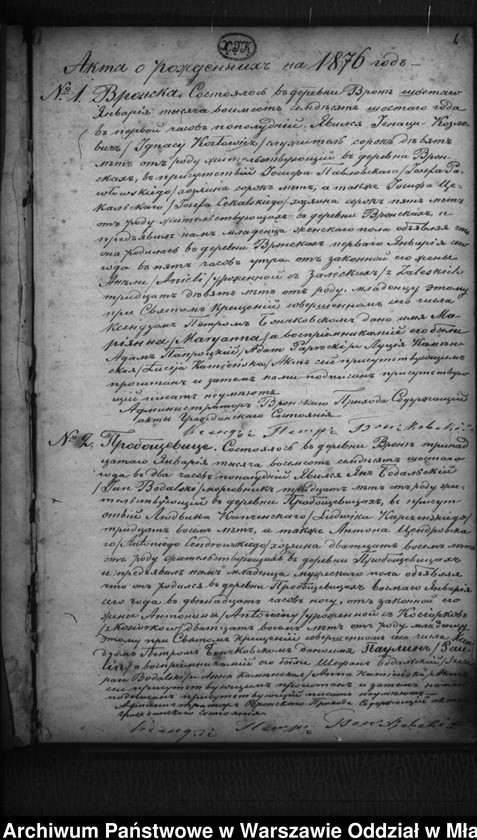 ХПК
Акта о рожденіихъ на 1876 годъ
№ 1. Вронска. Состоялось въ деревни Вронѣ шостаго
Января тысяча восемсотъ семдесятъ шостаго года
въ первой часовъ пополудній. Явился Игнаци Козло
вичъ /Ignacy Kozłowicz/ служитель сорока девятъ
лѣтъ отъ роду жительствующій въ деревни Врон-
скахъ, въ присутствіи Іосифа Павловскаго /Józefa Pa-
włowskiego/ сорокъ лѣтъ, а также Іосифа Це-
кальскаго /Józefa Cekalskiego/ сорокъ пять лѣтъ
отъ роду жительствующихъ въ деревни Вронскахъ, и
предъявилъ намъ младенца женскаго пола объявляя что
она родилась въ деревни Вронскахъ перваго Января сего
года въ пять часовъ утра отъ законной его жены
Анели /Anieli/ урожденной съ Залескихъ /z Zaleskich/
тридцать девять лѣтъ отъ роду. младенцу этому
при Святомъ Крещеніи совершенномъ сего числа
Ксендзомъ Петромъ Бончковскомъ дано имя Ма-
ріянна /Maryanna/ а воспріемниками его были
Адамъ Папроцкій /Adam Paprocki/ и Луція Камен-
ская /Łucija Kamieńska/ Актъ сей присутствующемъ
прочитанъ и затемъ нами подписанъ присутствую
щіе писать неумеютъ
Администраторъ Вронскаго Прихода Содержающій
акты Гражданскаго Состоянія
Ксендзъ Петръ Бончковскій
№ 2. Пробощевице. Состоялось въ деревни Вронѣ тринад
цатаго Января тысяча восемсотъ семдесятъ шостаго
года въ два часа пополудній Явился Янъ Бодальскій
/Jan Bodalski/ тридцать лѣтъ отъ роду жи-
тельствующій въ деревни Пробощевицахъ, въ присут
ствіи Людвика
тридцать восемъ лѣтъ, и также Антона Цендровска
го /Antoniego Cendrowskiego/ хозяина двадцать восемъ лѣтъ
отъ роду жительствующихъ въ деревни Пробощевицахъ
и предъявилъ намъ младенца мужескаго пола объявляя
что онъ родился въ деревни Пробощевицахъ восмаго Января
сего года въ двенадцать часовъ ночу, отъ законной его
жены Антонины /Antoniny/ урожденной съ
двадцать восемъ лѣтъ отъ роду младенцу
этому при Святомъ Крещеніи совершенномъ сего числа Ксен
дзомъ Петромъ Бончковскомъ дано имя Паулинъ /Pau-
lin/ а воспріемниками его были Щефанъ Бодальскій /Szcze
pan Bodalski/ и Анна Каминская /Anna Kamińska/ Актъ
сей присутствующемъ прочитанъ и затемъ нами
подписанъ присутствующій писать неумеютъ
Администраторъ Вронскаго Прихода Содержающій акты
гражданскаго состоянія
Ксендзъ Петръ Бончковскій
Archiwum Państwowe w Warszawie Oddział w Mła